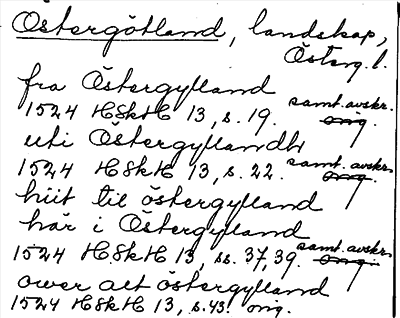 Östergötland, landskap,
Österg. l.
fra Östergylland
1524 HSkH 13, s. 19. samt. avskr. orig.
uti Östergyllandh
1524 HSkH 13, s. 22. samt. avskr. orig.
hiit til östergylland
här i Östergylland
1524 HSkH 13, ss. 37, 39. samt. avskr. orig.
ower alt östergylland
1524 HSkH 13, s. 43. orig.